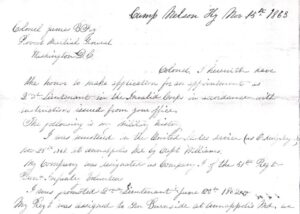 Camp Nelson Ky Nov 14th 1863
Colonel James B Fry
Provost Marshal General
Washington D.C
Colonel, I herewith have
the honor to make application for an appointment as
2nd Lieutenant in the Invalid Corps in accordance with
instructions issued from your office.
The following is my Military history
I was mustered in the United States Service as
at Annapolis Md by Capt Williams.
My Company was designated as Company of the 51st Regt
Penn. Infantry Volunteers
I was promoted 2nd Lieutenant June
My Regt was assigned to Gen Burnside at Annapolis Md, we